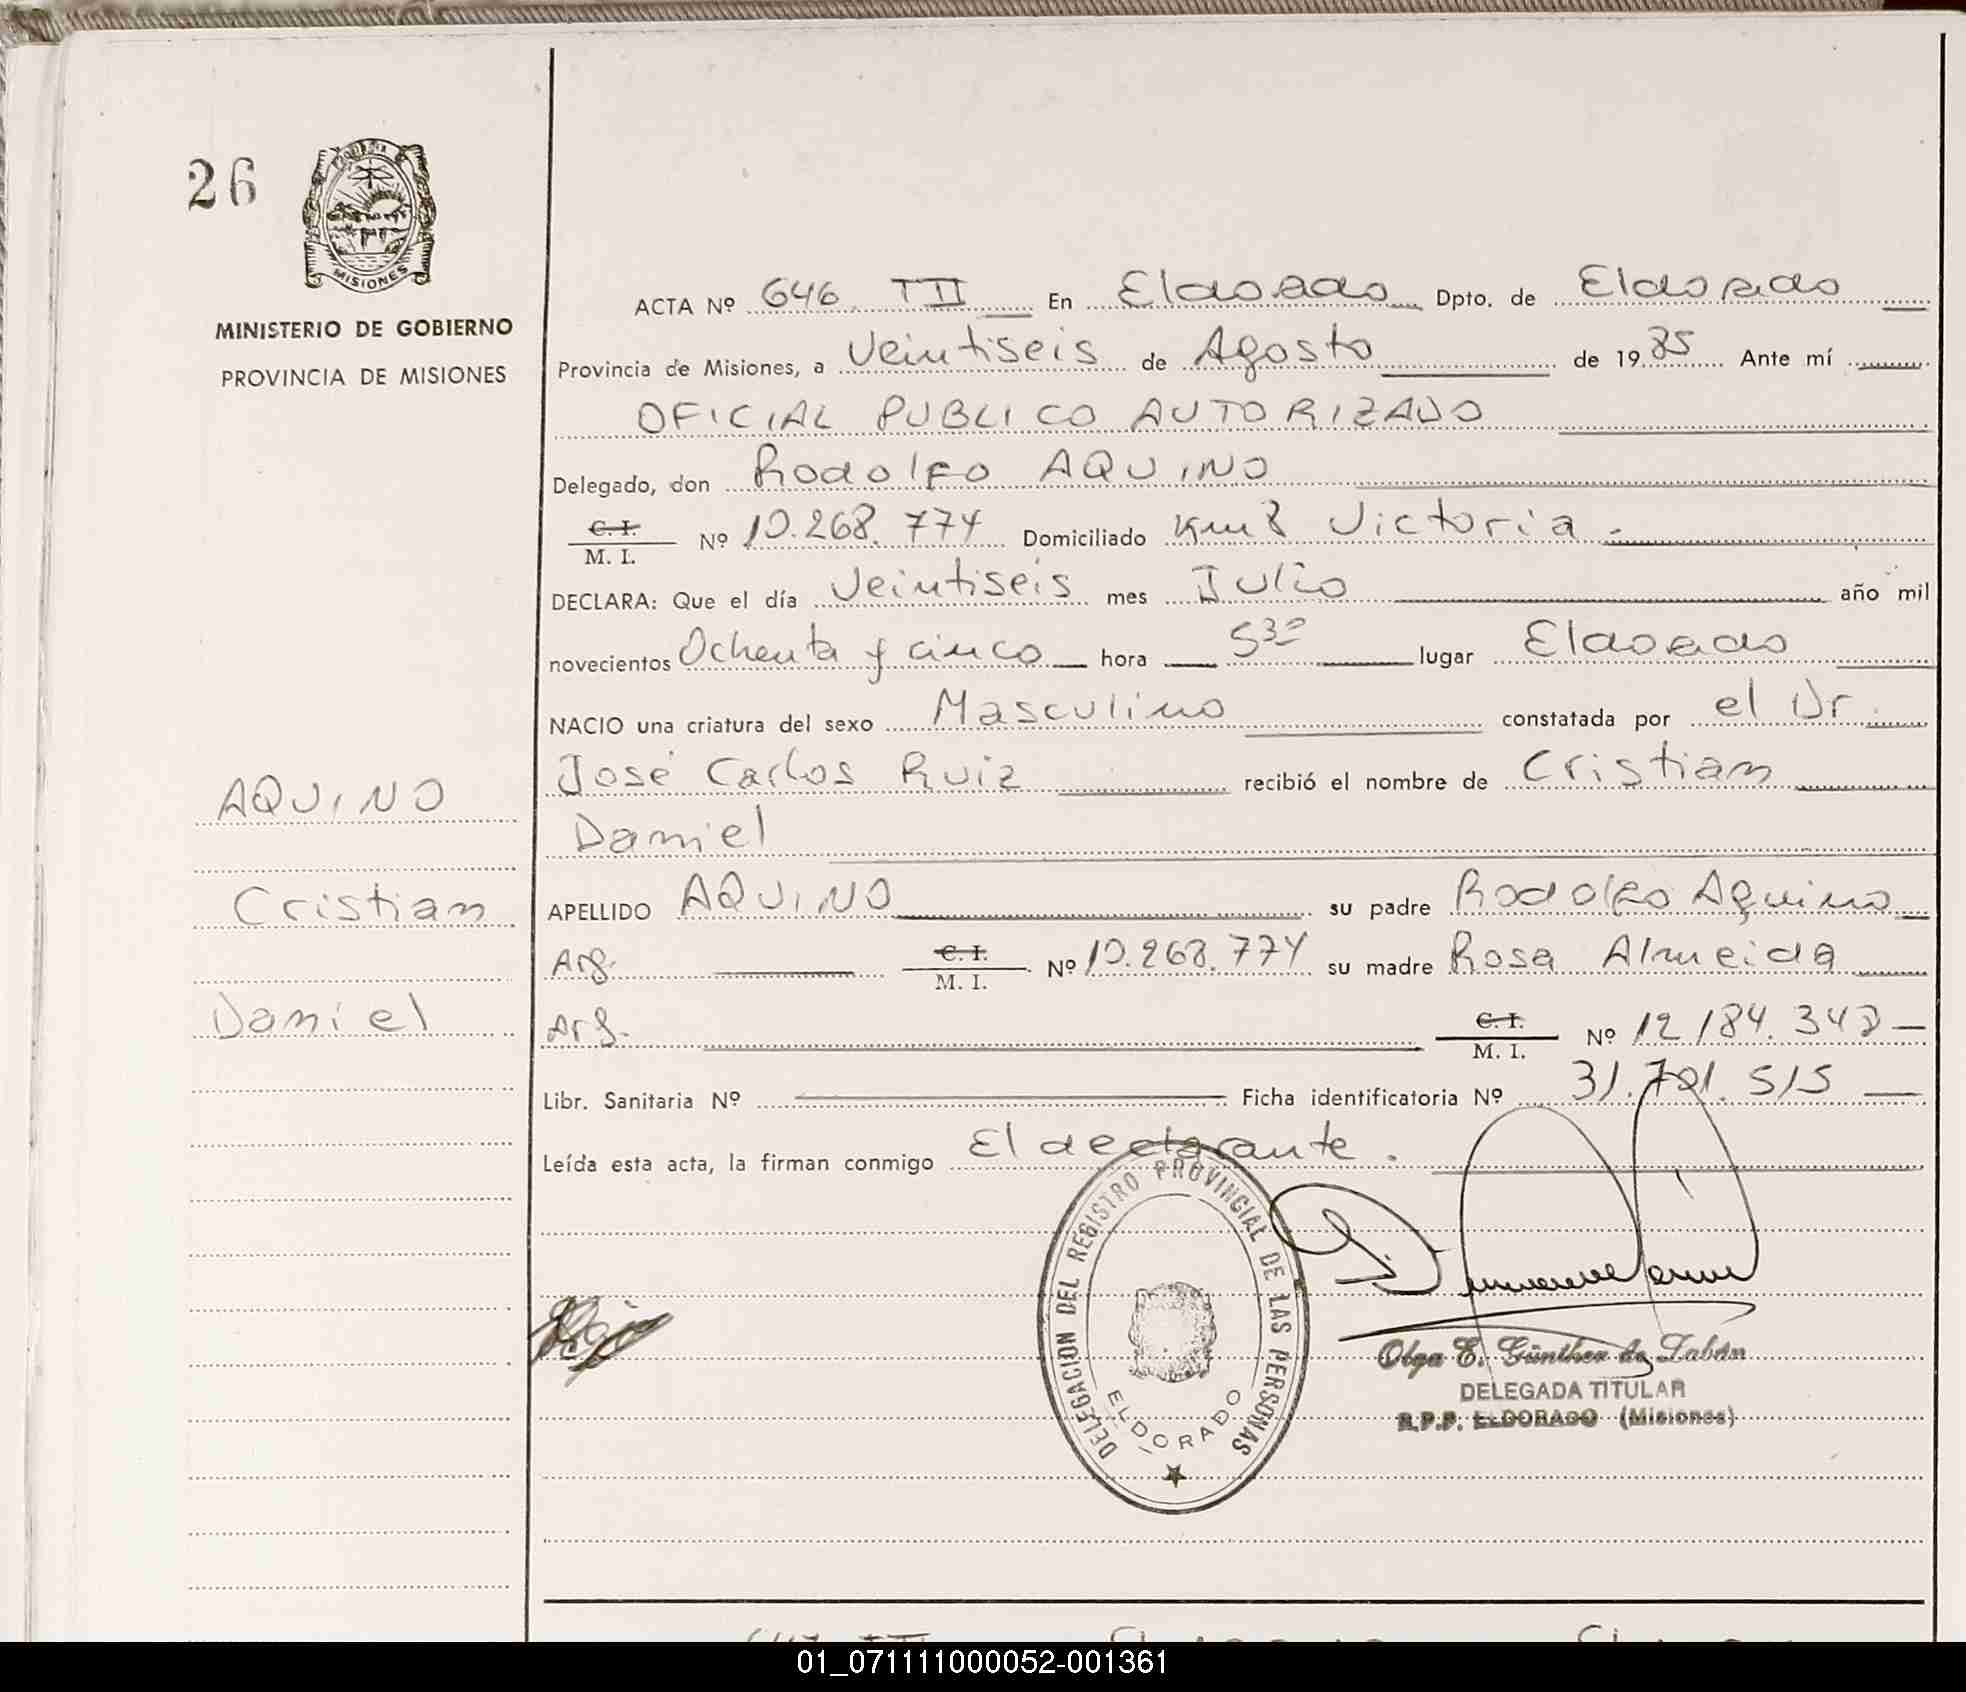 26
MISIONES
MINISTERIO DE GOBIERNO
PROVINCIA DE MISIONES
ACTA Nº 646 TII En Eldorado Dpto. de Eldorado
Provincia de Misiones, a Veintiseis de Agosto de 1985 Ante mí
OFICIAL PUBLICO AUTORIZADO
Delegado, don Rodolfo AQUINO
C. I.
M. I. Nº 10.268.774 Domiciliado Km 8 Victoria.
DECLARA: Que el día Veintiseis mes Julio año mil
novecientos Ochenta y cinco hora 5 30 lugar Eldorado
NACIO una criatura del sexo Masculino constatada por el Dr.
José Carlos Ruiz recibió el nombre de Cristian
Daniel
APELLIDO AQUINO su padre Rodolfo Aquino
Arg. C. I.
M. I. Nº 10.268.774 su madre Rosa Almeida
Arg. C. I.
M. I. Nº 12.184.342
Libr. Sanitaria Nº Ficha identificatoria Nº 31.701.515
Leída esta acta, la firman conmigo El declarante.
AQUINO
Cristian
Daniel
DELEGACION DEL REGISTRO PROVINCIAL DE LAS PERSONAS
ELDORADO
Olga E. Günther de Zabán
DELEGADA TITULAR
R.P.P. ELDORADO (Misiones)
01_071111000052-001361